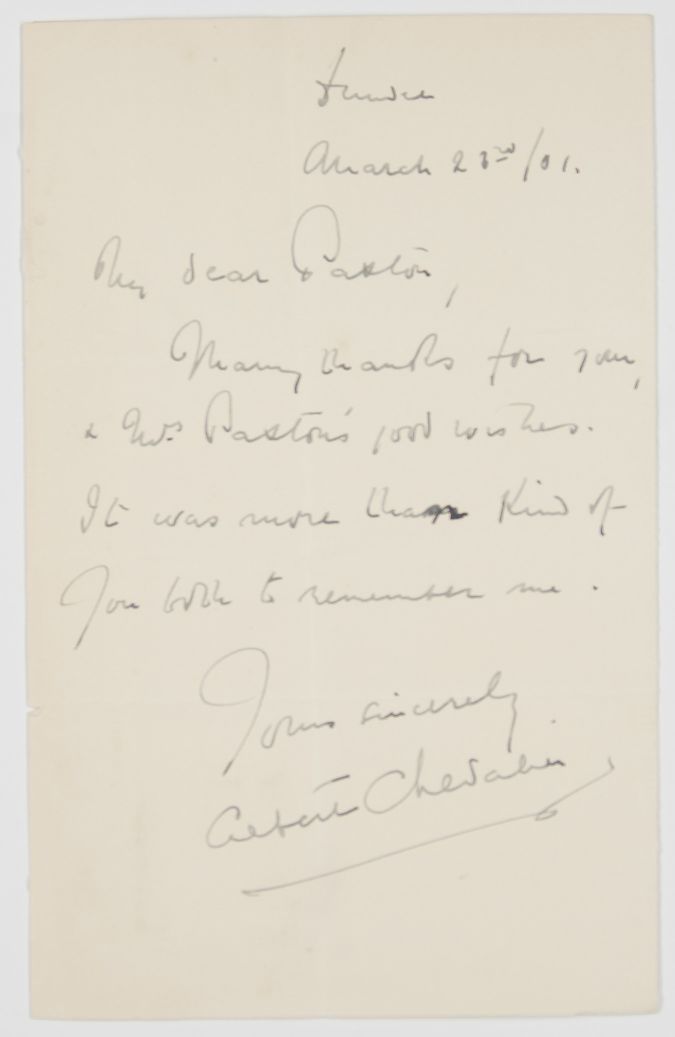 Dundee
March 23rd/01.
My dear Paxton,
Many thanks for your,
& Mrs Paxton's good wishes.
It was more than kind of
you both to remember me.
Yours sincerely
Albert Chevalier